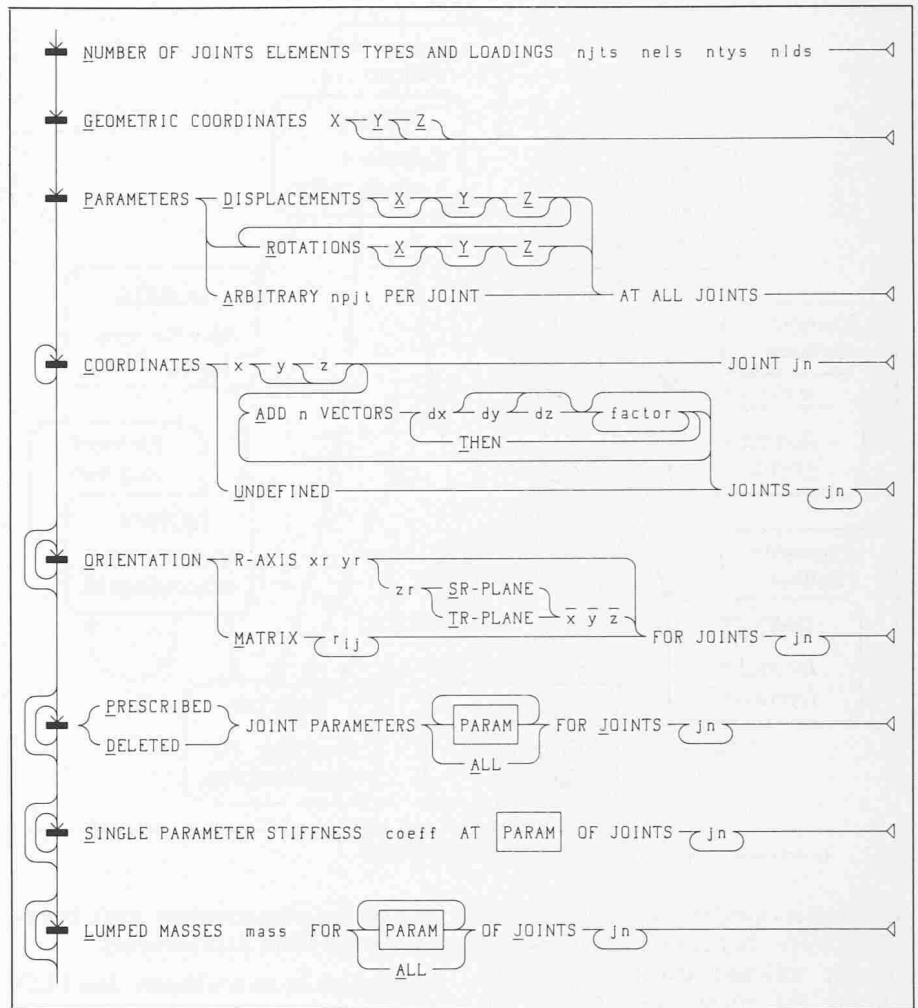 NUMBER OF JOINTS ELEMENTS TYPES AND LOADINGS njts nels ntys nlds
GEOMETRIC COORDINATES X Y Z
PARAMETERS DISPLACEMENTS X Y Z
ROTATIONS X Y Z
ARBITRARY npjt PER JOINT AT ALL JOINTS
COORDINATES x y z JOINT jn
ADD n VECTORS dx dy dz factor
THEN
UNDEFINED JOINTS jn
ORIENTATION R-AXIS xr yr
zr SR-PLANE
TR-PLANE x̅ y̅ z̅
MATRIX rij FOR JOINTS jn
PRESCRIBED
DELETED
JOINT PARAMETERS PARAM FOR JOINTS jn
ALL
SINGLE PARAMETER STIFFNESS coeff AT PARAM OF JOINTS jn
LUMPED MASSES mass FOR PARAM OF JOINTS jn
ALL